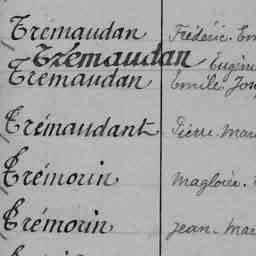 Tremaudan Frédéric
Trémaudan Eugène
Tremaudan Emile
Trémaudant Pierre
Trémorin Magloire
Trémorin Jean